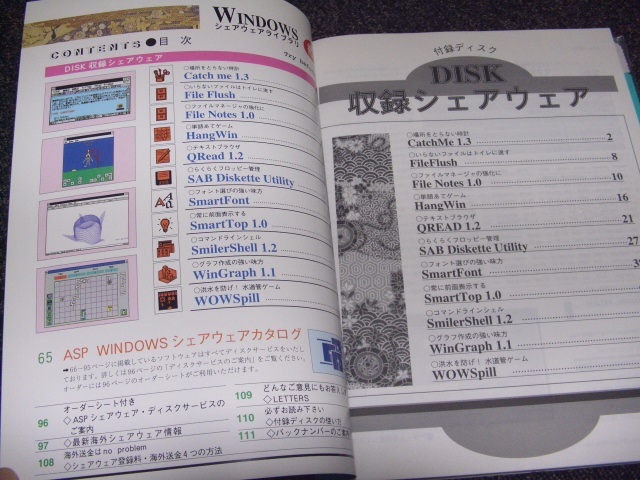 WINDOWS
シェアウェアライブラリ
CONTENTS●目 次
DISK 収録シェアウェア
○場所をとらない時計
Catch me 1.3
○いらないファイルはトイレに流す
File Flush
○ファイルマネージャの強化に
File Notes 1.0
○単語あてゲーム
HangWin
○テキストブラウザ
QRead 1.2
○らくらくフロッピー管理
SAB Diskette Utility
○フォント選びの強い味方
SmartFont
○常に前面表示する
SmartTop 1.0
○コマンドラインシェル
SmilerShell 1.2
○グラフ作成の強い味方
WinGraph 1.1
○洪水を防げ！水道管ゲーム
WOWSpill
65 ASP WINDOWSシェアウェアカタログ
➡66～95ページに掲載しているソフトウェアはすべてディスクサービスをいたし
ております。詳しくは96ページの「ディスクサービスのご案内」をご覧ください。
オーダーには96ページのオーダーシートがご利用いただけます。
オーダーシート付き
96 ◇ASPシェアウェア・ディスクサービスの
ご案内
97 ◇最新海外シェアウェア情報
海外送金はno problem
108 ◇シェアウェア登録料・海外送金4つの方法
どんなご意見にもお答え
109 ◇LETTERS
必ずお読み下さい
110 ◇付録ディスクの使い方
111 ◇バックナンバーのご案内
付録ディスク
DISK
収録シェアウェア
○場所をとらない時計
CatchMe 1.3 2
○いらないファイルはトイレに流す
FileFlush 8
○ファイルマネージャの強化に
File Notes 1.0 10
○単語あてゲーム
HangWin 16
○テキストブラウザ
QREAD 1.2 21
○らくらくフロッピー管理
SAB Diskette Utility 27
○フォント選びの強い味方
SmartFont
○常に前面表示する
SmartTop 1.0
○コマンドラインシェル
SmilerShell 1.2
○グラフ作成の強い味方
WinGraph 1.1
○洪水を防げ！水道管ゲーム
WOWSpill